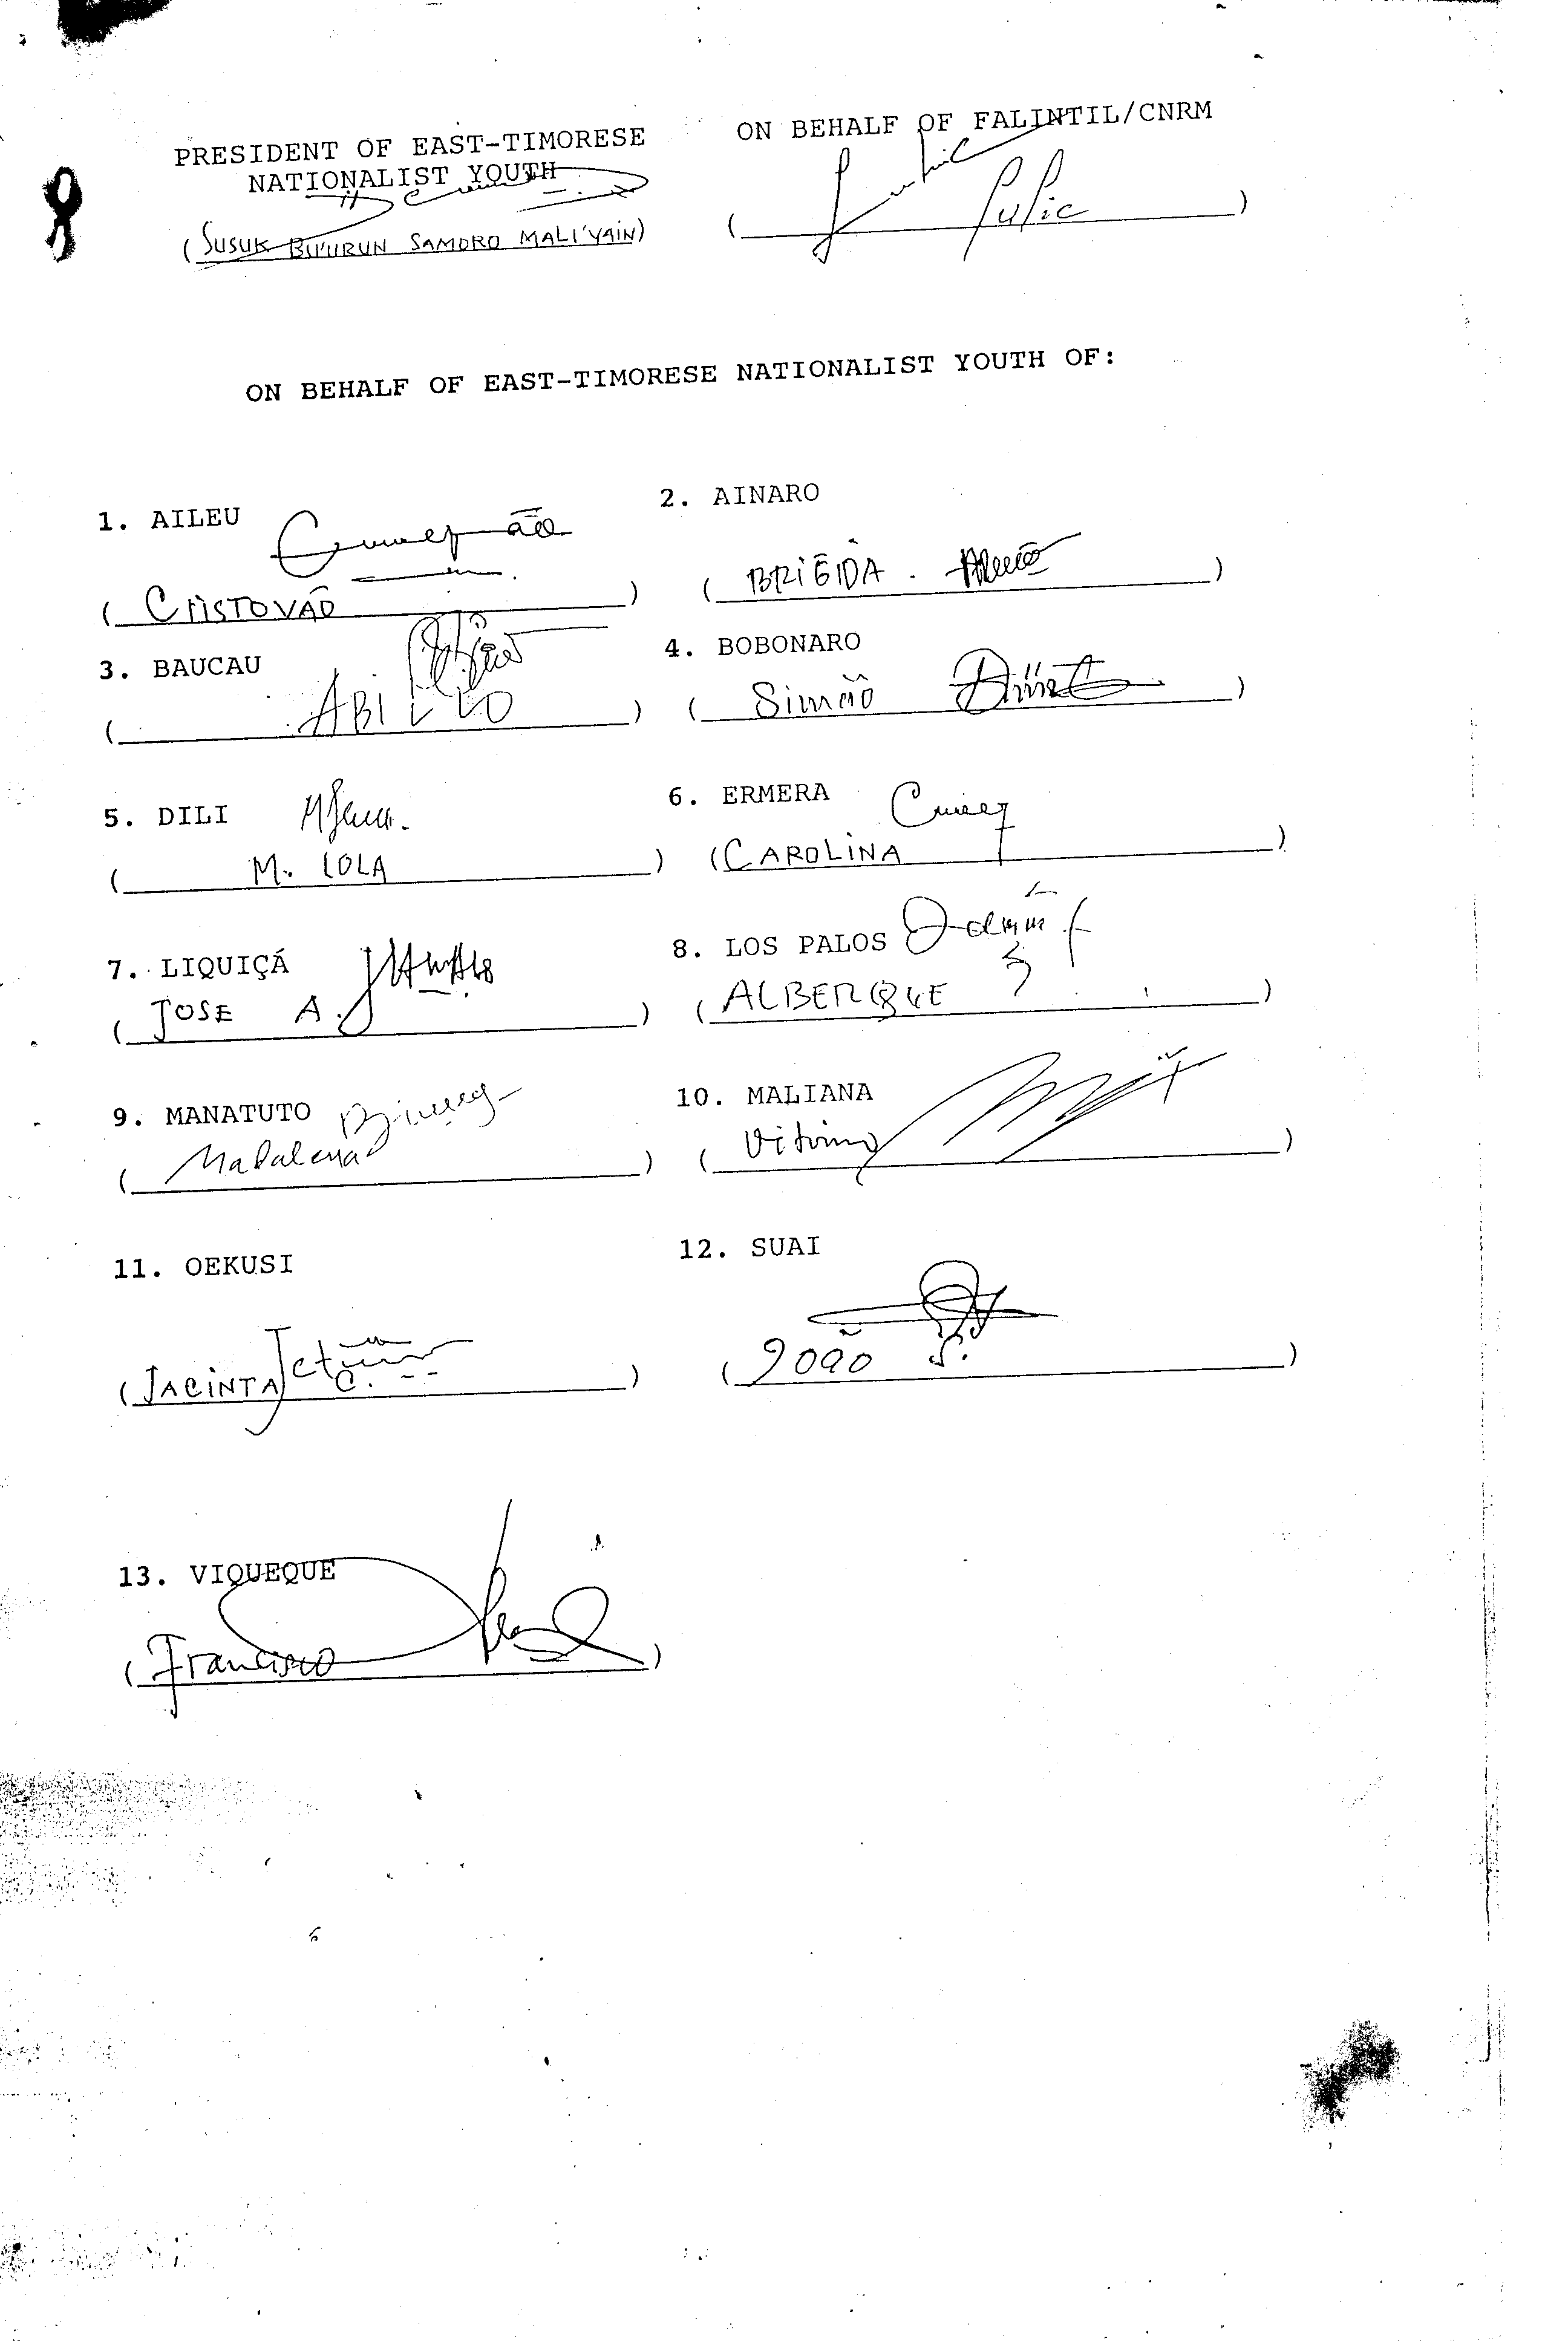 PRESIDENT OF EAST-TIMORESE
NATIONALIST YOUTH
(SUSUK BU'URUN SAMORO MALI'VAIN)
ON BEHALF OF FALINTIL/CNRM
( )
ON BEHALF OF EAST-TIMORESE NATIONALIST YOUTH OF:
1. AILEU
(CRISTOVÃO)
2. AINARO
(BRIGIDA.)
3. BAUCAU
(ABILIO)
4. BOBONARO
(Simão)
5. DILI
(M. LOLA)
6. ERMERA
(CAROLINA)
7. LIQUIÇÁ
(JOSE A.)
8. LOS PALOS
(ALBERQUE)
9. MANATUTO
(Madalena)
10. MALIANA
(Vitorino)
11. OEKUSI
(JACINTA C.)
12. SUAI
(João S.)
13. VIQUEQUE
(Francisco)